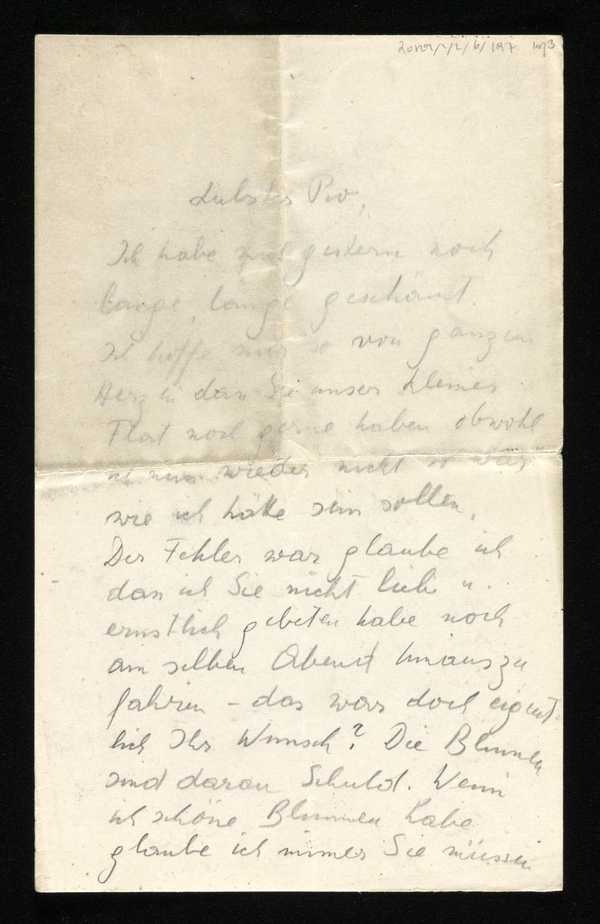 Liebster Pio,
Ich habe mich gestern noch
lange, lange geschämt.
Ich hoffe nur so von ganzem
Herzen dass Sie unser kleines
Flat noch gerne haben obwohl
ich nun wieder nicht so war
wie ich hätte sein sollen.
Der Fehler war glaube ich
dass ich Sie nicht lieb u.
ernstlich gebeten habe noch
am selben Abend hinauszu
fahren – das war doch eigent-
lich Ihr Wunsch? Die Blumen
sind daran Schuld. Wenn
ich schöne Blumen habe
glaube ich immer Sie müssen